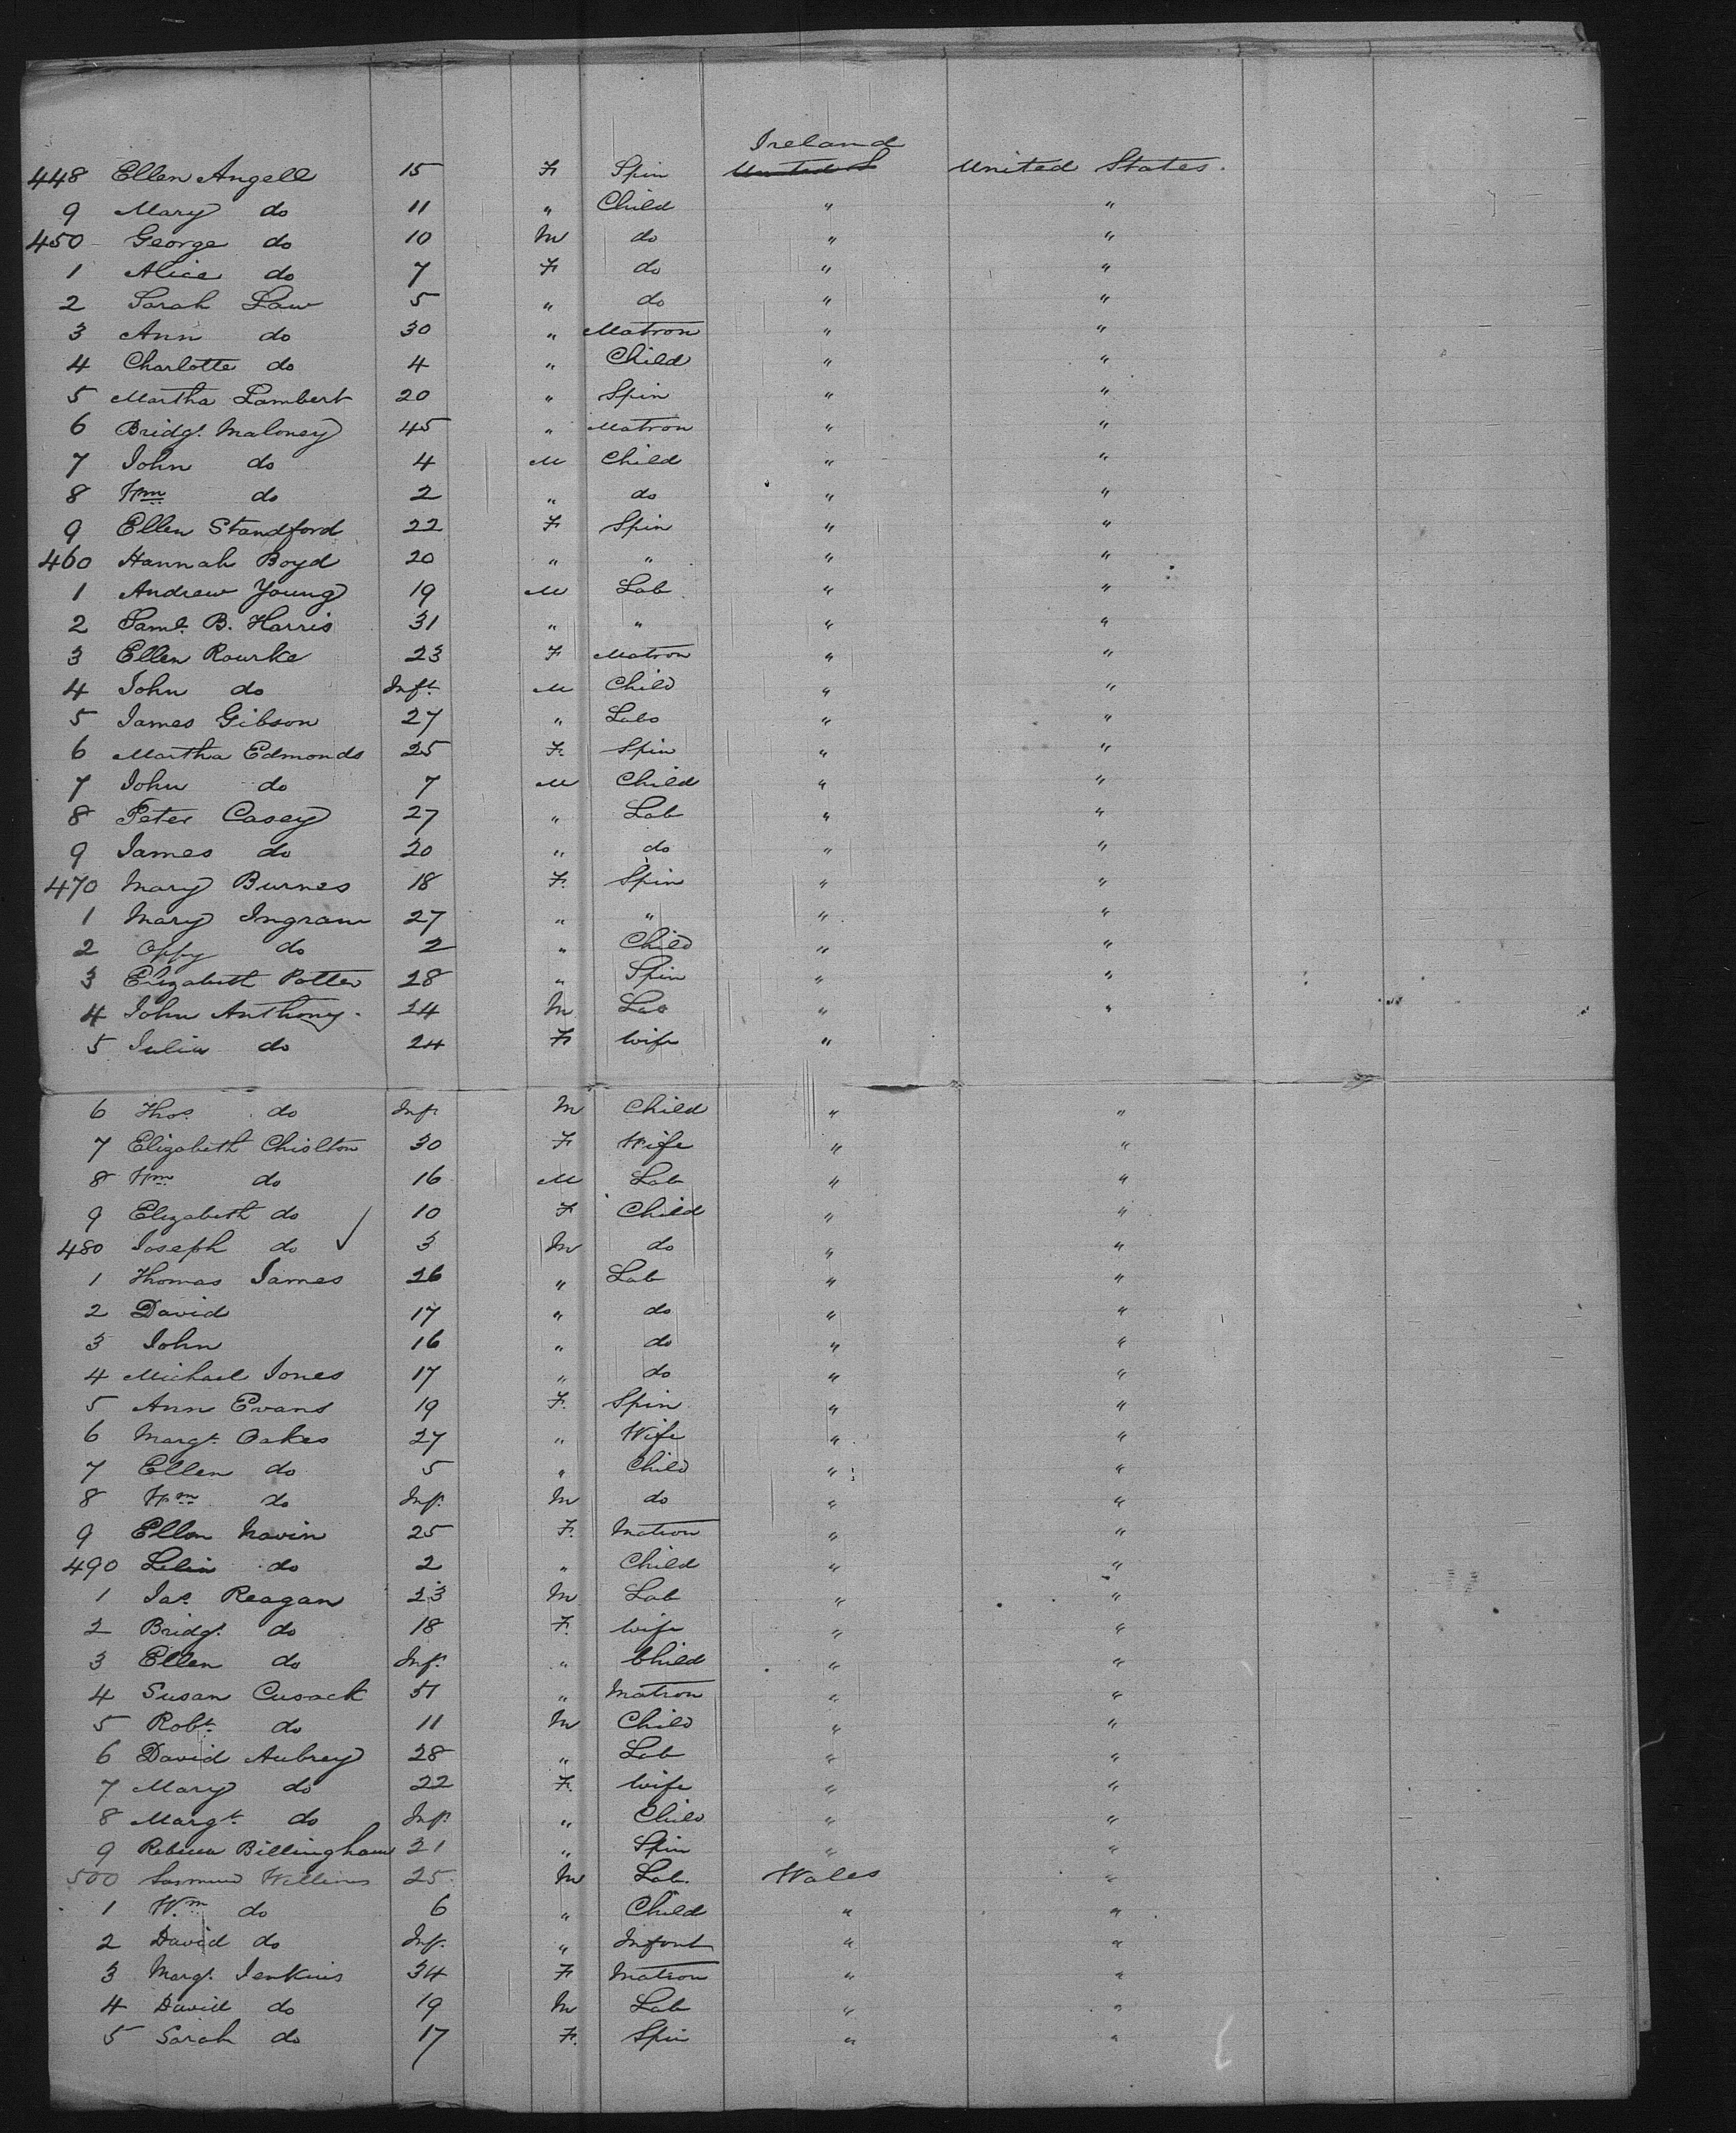 Ireland
448 Ellen Angell 15 F Spin United S United States.
9 Mary do 11 " Child " "
450 George do 10 M do " "
1 Alice do 7 F do " "
2 Sarah Law 5 " do " "
3 Ann do 30 " Matron " "
4 Charlotte do 4 " Child " "
5 Martha Lambert 20 " Spin " "
6 Bridgt. Maloney 45 " Matron " "
7 John do 4 M Child " "
8 Wm do 2 " do " "
9 Ellen Standford 22 F Spin " "
460 Hannah Boyd 20 " " " "
1 Andrew Young 19 M Lab " "
2 Saml. B. Harris 31 " " " "
3 Ellen Rourke 23 F Matron " "
4 John do Inft. M Child " "
5 James Gibson 27 " Lab " "
6 Martha Edmonds 25 F. Spin " "
7 John do 7 M Child " "
8 Peter Casey 27 " Lab " "
9 James do 20 " do " "
470 Mary Burnes 18 F. Spin " "
1 Mary Ingram 27 " " " "
2 do 2 " Child " "
3 Elizabeth Potter 28 " Spin " "
4 John Anthony. 24 M Lab " "
5 Julia do 24 F Wife "
6 Thos. do Inf. M Child " "
7 Elizabeth Chislton 30 F Wife " "
8 Wm do 16 M Lab " "
9 Elizabeth do 10 F Child " "
480 Joseph do 3 M do " "
1 Thomas James 26 " Lab " "
2 David 17 " do " "
3 John 16 " do " "
4 Michael Jones 17 " do " "
5 Ann Evans 19 F. Spin " "
6 Margt. Oakes 27 " Wife " "
7 Ellen do 5 " Child " "
8 Wm do Inf. M do " "
9 Ellen Navin 25 F. Matron " "
490 do 2 " Child " "
1 Jas. Reagan 23 M Lab " "
2 Bridgt. do 18 F. Wife " "
3 Ellen do Inf. " Child " "
4 Susan Cusack 51 " Matron " "
5 Robt. do 11 M Child " "
6 David Aubrey 28 " Lab " "
7 Mary do 22 F. Wife " "
8 Margt. do Inf. " Child " "
9 Rebecca Billingham 21 " Spin " "
500 25 M Lab. Wales "
1 Wm do 6 " Child " "
2 David do Inf. " Infant " "
3 Margt. Jenkins 34 F Matron " "
4 David do 19 M Lab " "
5 Sarah do 17 F. Spin " "